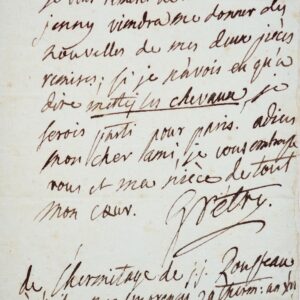 jenny viendra me donner des
nouvelles de mes deux pièces
remises; si je n'avois eu qu'a
dire mettez les chevaux, je
serois parti pour paris. adieu
mon cher ami, je vous embrasse
vous et ma nièce de tout
mon cœur. Grétry.
de l'hermitage de j. j. Rousseau